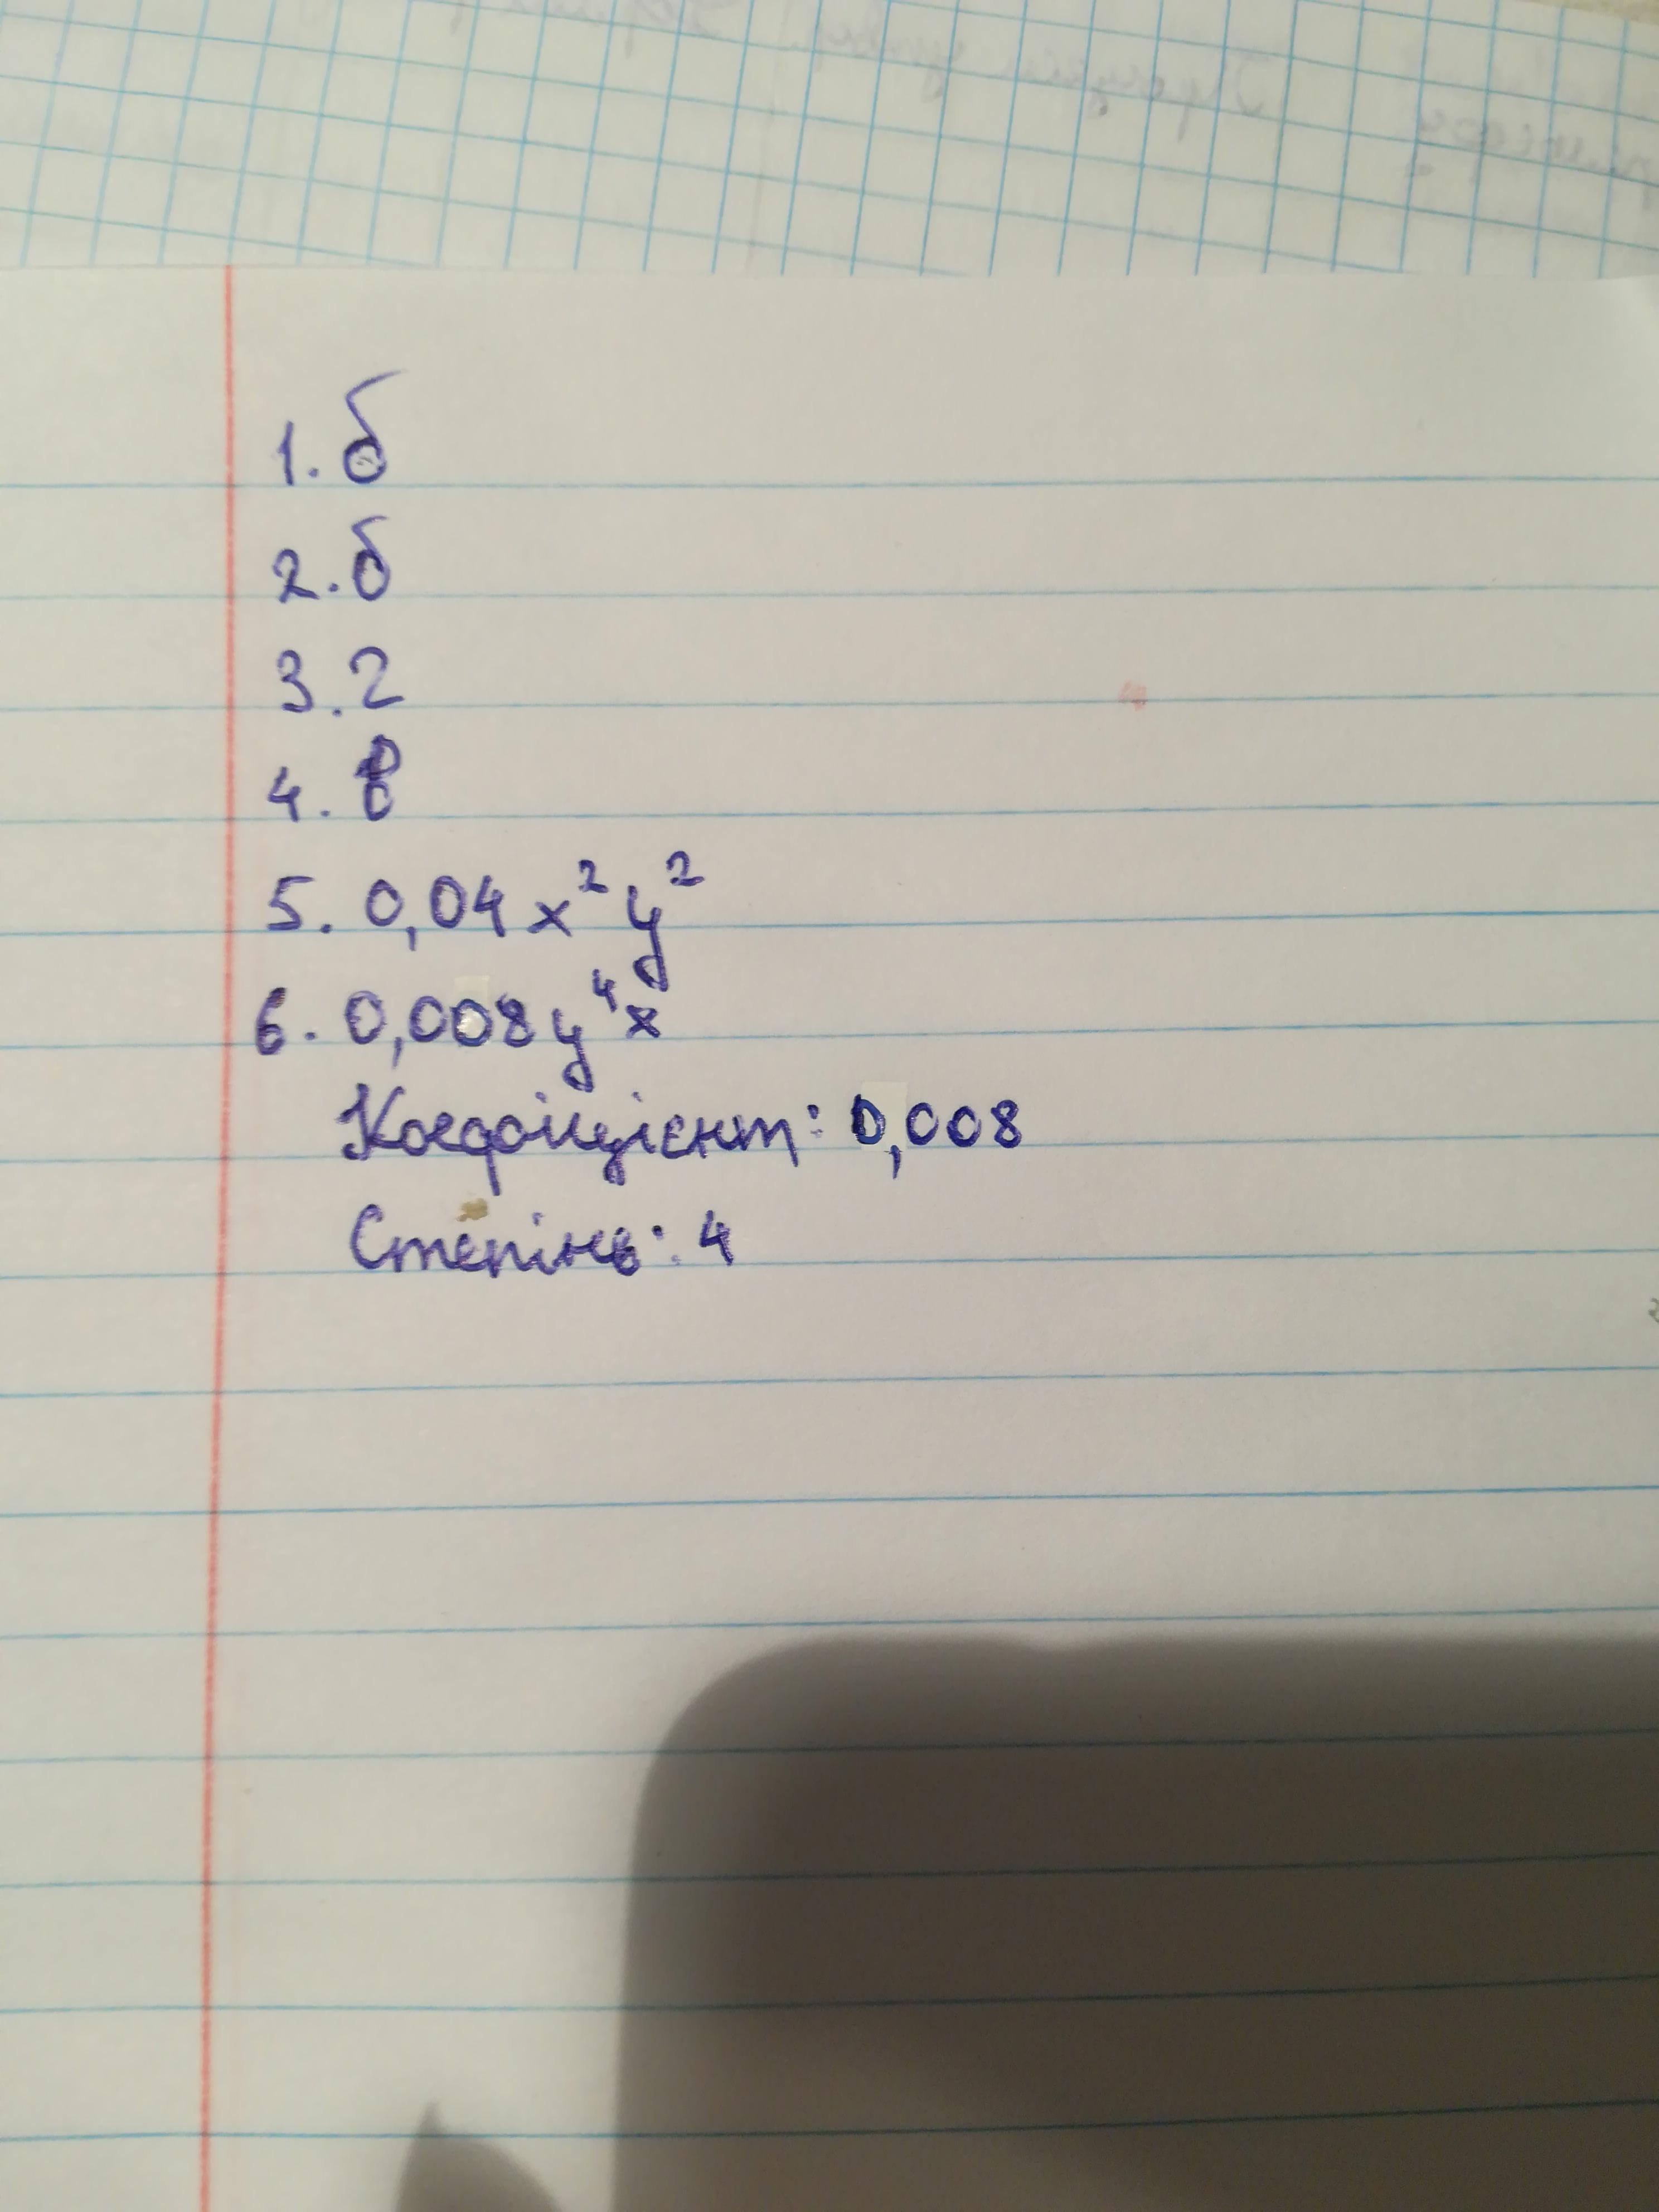 1. б
2. б
3. г
4. в
5. 0,04x²y²
6. 0,008y⁴x
Коефіцієнт: 0,008
Степінь: 4